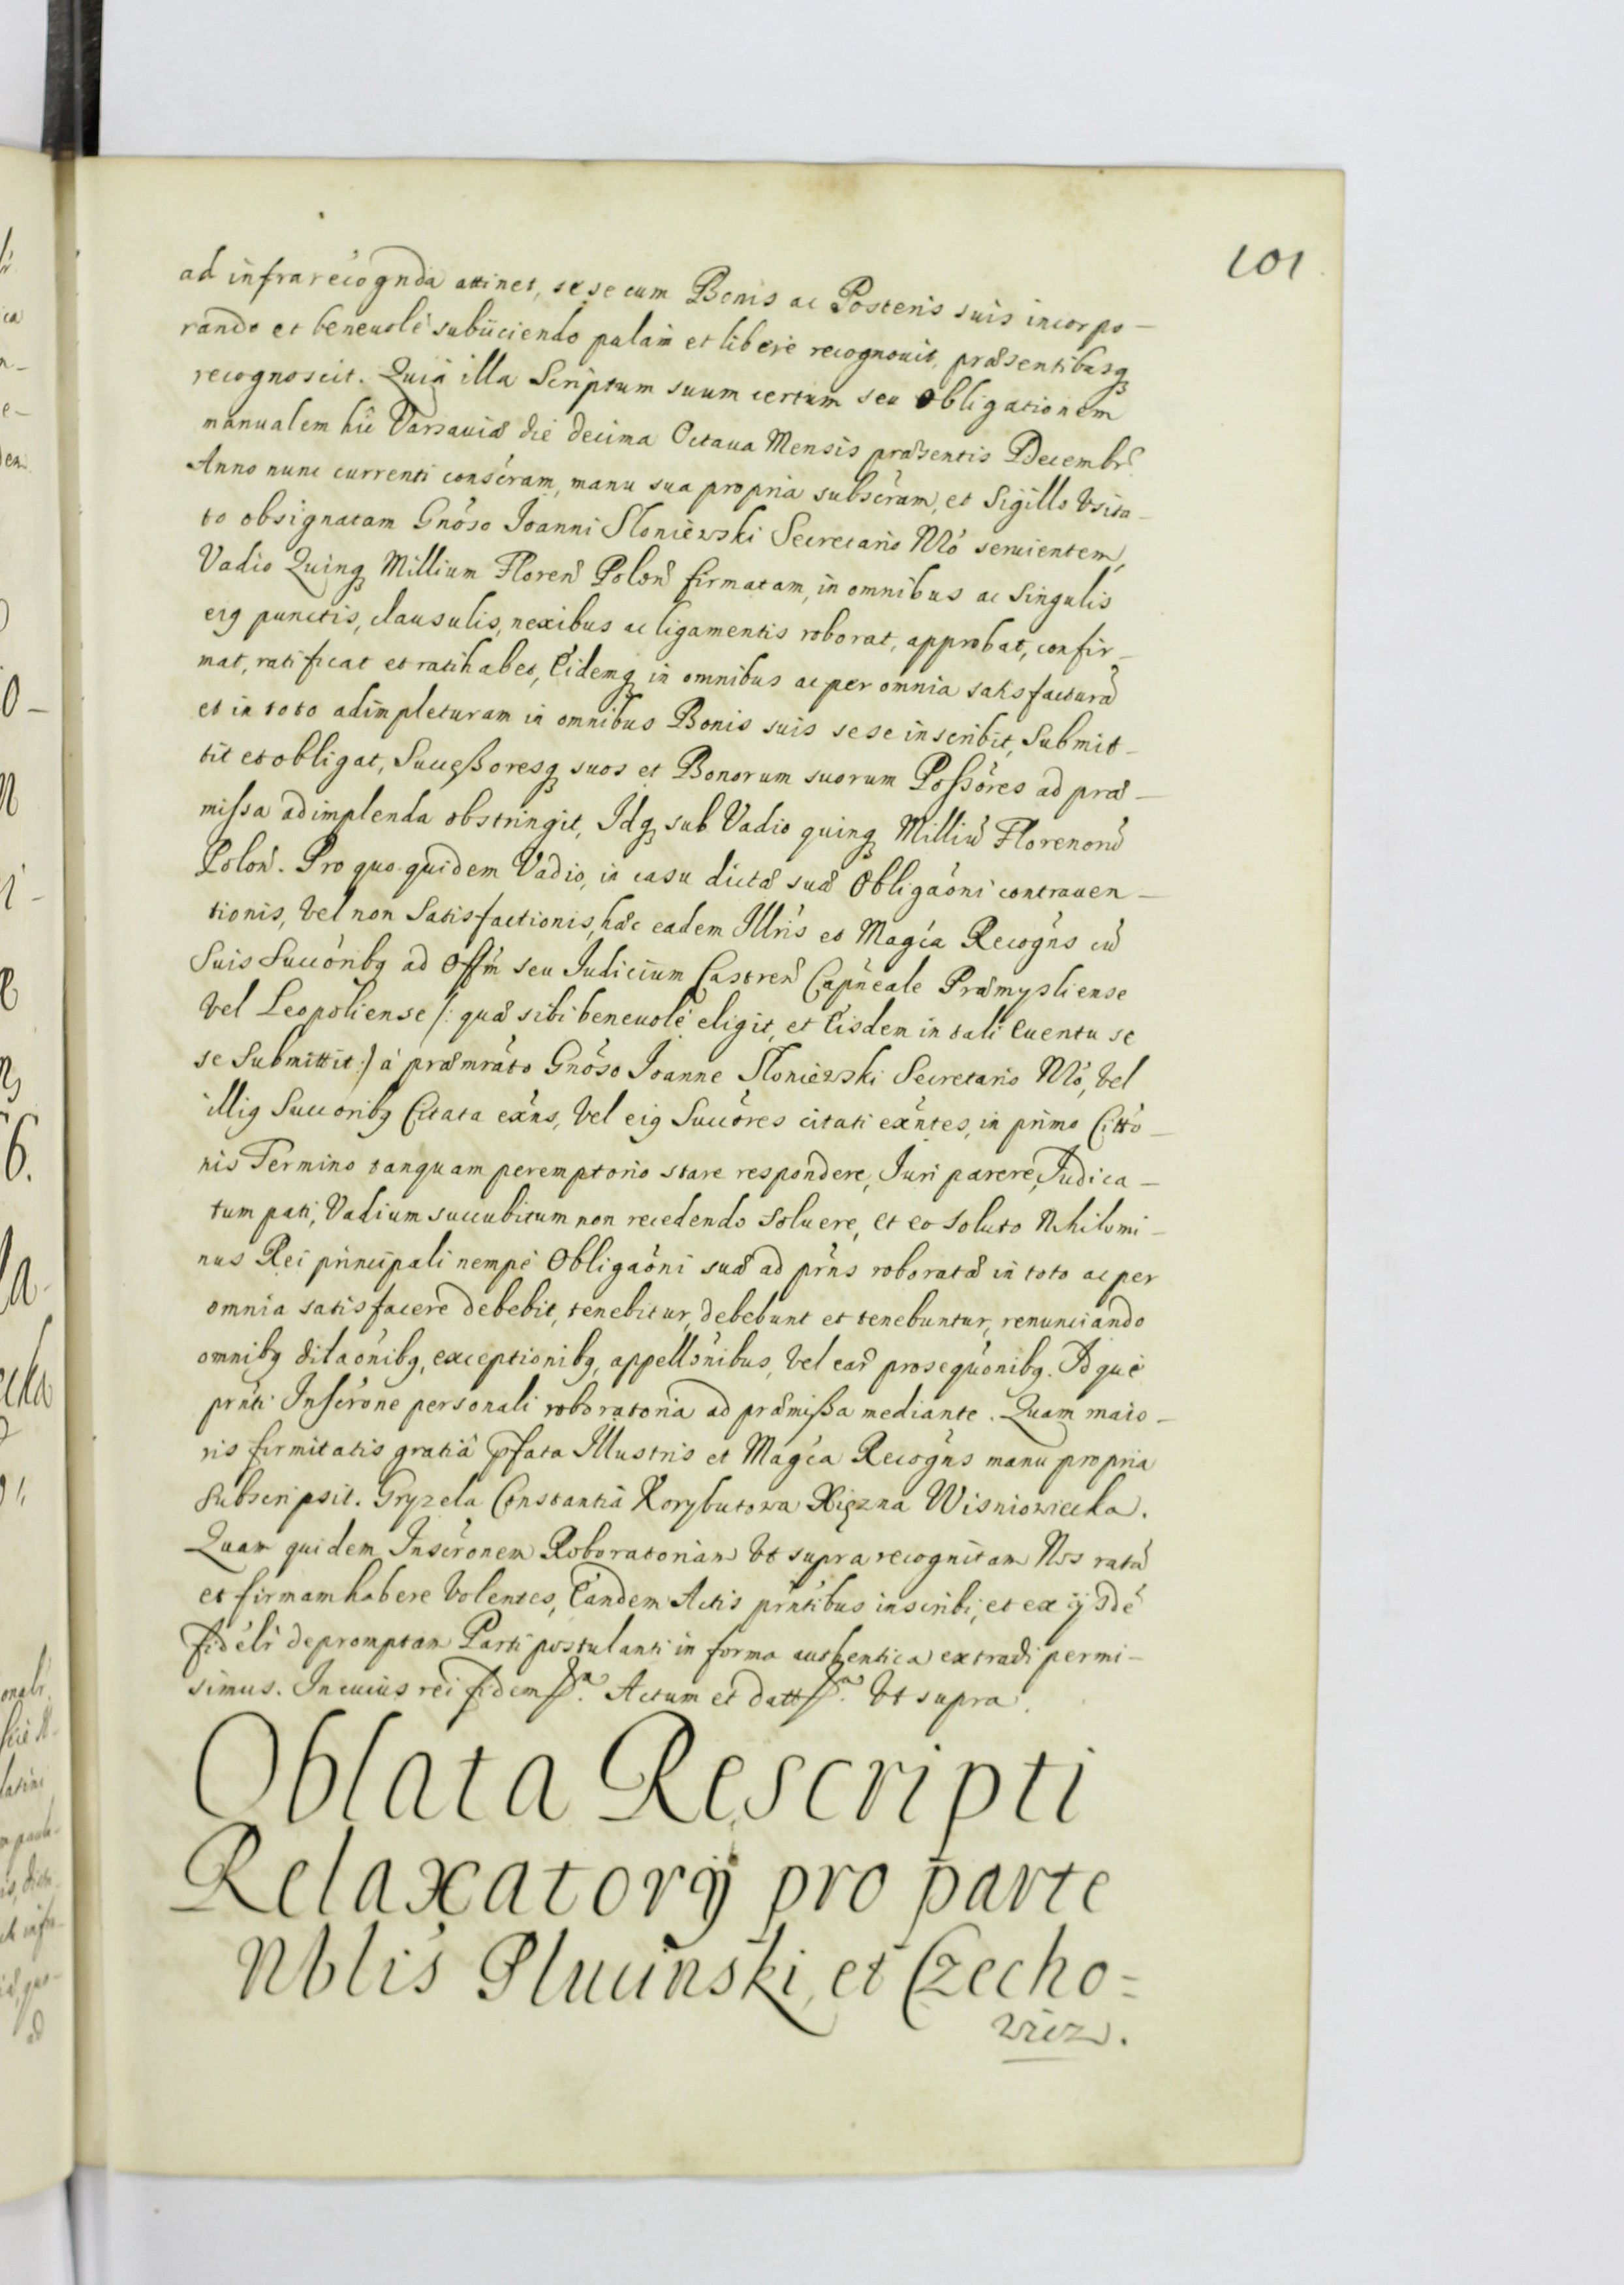 101
ad infrarecognda attinet, sese cum Bonis ac Posteris suis incorpo—
rando et beneuolè subijciendo palam et liberè recognouit, præsentibusq
recognoscit. Quia illa Scriptum suum certum seu Obligationem
manualem hîc Varsauiæ die decima Octaua Mensis præsentis Decembr
Anno nunc currenti conscram, manu sua propria subscram, et Sigillo Vsita—
to obsignatam Gnoso Ioanni Słoniewski Secretario Nło seruientem,
Vadio Quinq Millium Floren Polon firmatam, in omnibus ac Singulis
eig punctis, clausulis, nexibus ac ligamentis roborat, approbat, confir—
mat, ratificat et ratihabet, Eidemq in omnibus ac per omnia satisfacturã
et in toto adimpleturam in omnibus Bonis suis sese inscribit, Submit—
tit et obligat, Successoresq suos et Bonorum suorum Possores ad præ—
missa adimplenda obstringit, Idq sub Vadio quinq Milliũ Florenorũ
Polon. Pro quo quidem Vadio, in casu dictæ suæ Obligaoni contrauen—
tionis, Vel non Satisfactionis, hæc eadem Illris et Magca Recogns cũ
Suis Succoribq ad Offm seu Iudicium Castren Capneale Præmysliense
Vel Leopoliense /: quæ sibi beneuolè eligit, et Eisdem in tali Euentu se
se Submittit :/ à præmrato Gnoso Ioanne Słoniewski Secretario Nło, Vel
illig Succoribq Citata exns, Vel eig Succores citati exntes, in primo Citto—
nis Termino tanquam peremptorio stare respondere, Iuri parere, Iudica—
tum pati, Vadium succubitum non recedendo soluere, et eo soluto Nihilomi—
nus Rei principali nempè Obligaoni suæ ad prns roboratæ in toto ac per
omnia satisfacere debebit, tenebitur, debebunt et tenebuntur, renunciando
omnibq dilaonibq, exceptionibq, appellonibus, Vel ear prosequonibq. Idque
prnti Inscrone personali roboratoria ad præmissa mediante. Quam maio—
ris firmitatis gratiâ pfata Illustris et Magca Recogns manu propria
subscripsit. Gryzela Constantia Korybutowa Xiężna Wisniowiecka.
Quam quidem Inscronem Roboratoriam Vt supra recognitam Nos ratã
et firmam habere Volentes, Eandem Actis prntibus inscribi, et ex ijsdẽ
fidelr depromptam Parti postulanti in forma authentica extradi permi—
simus. In cuius rei fidem . Actum et datt . Vt supra.
Oblata Rescripti
Relaxatorij pro parte
Nblis Plucinski, et Czecho=
wicz.